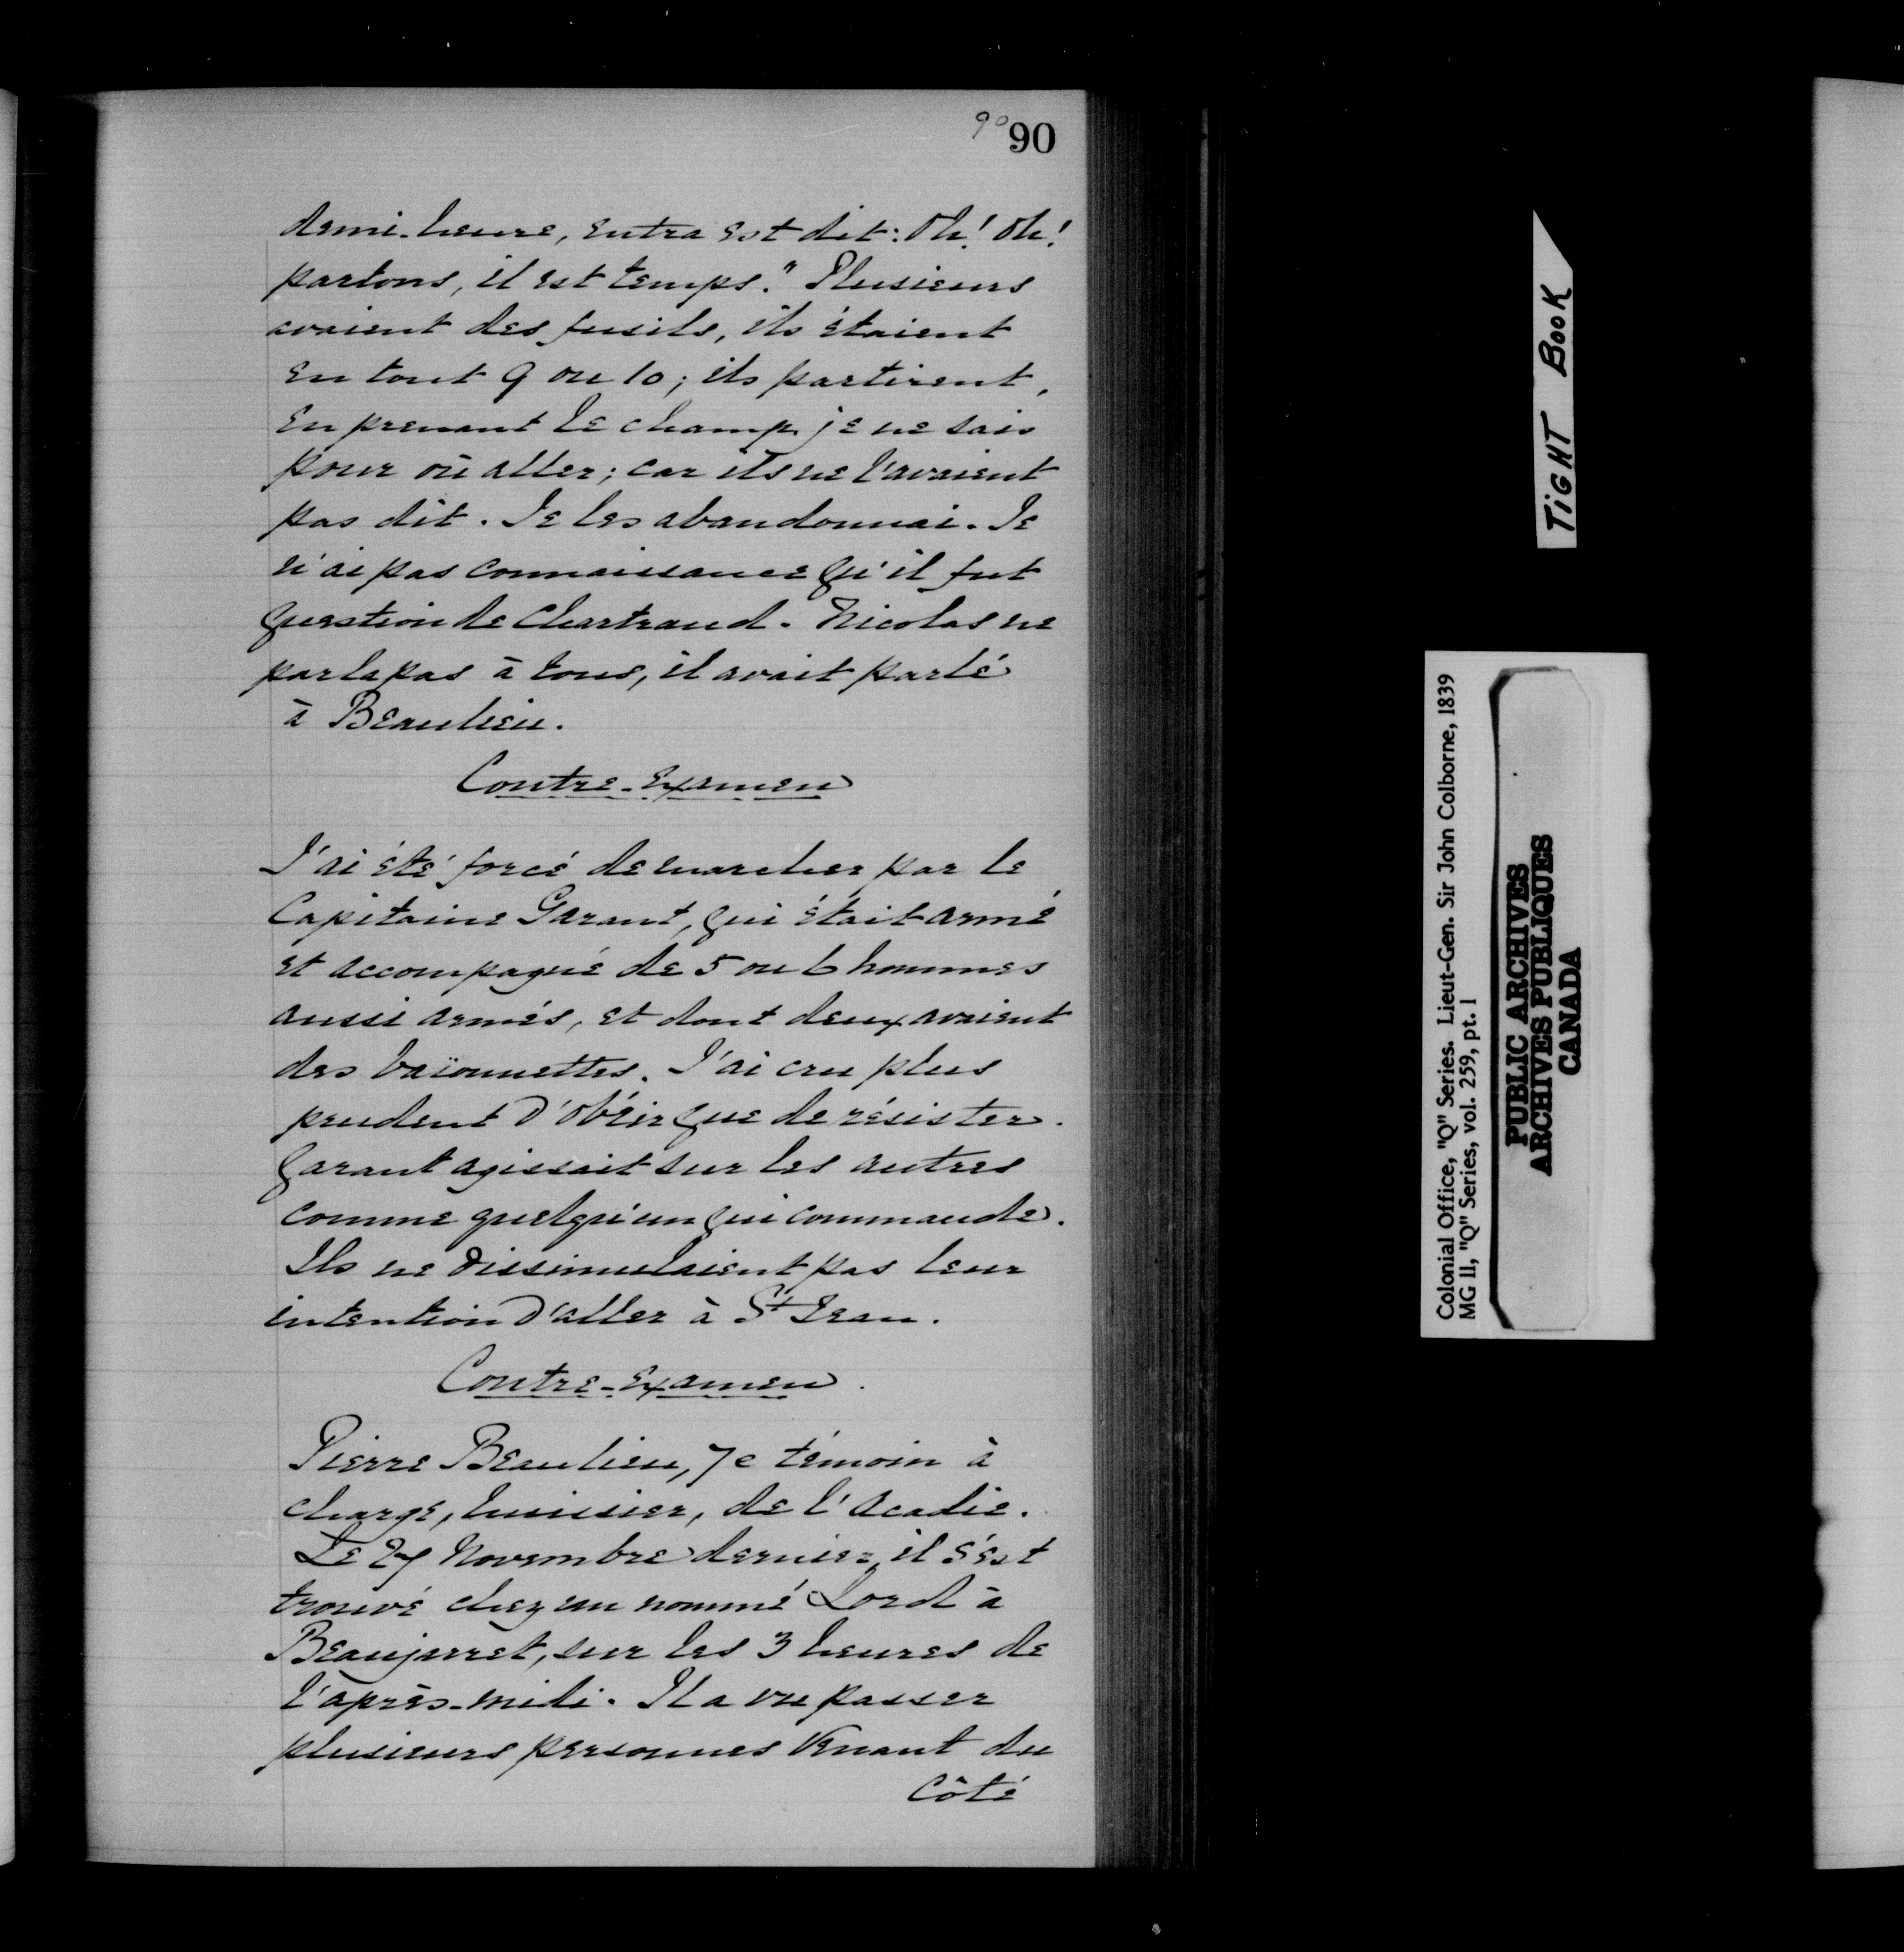 90
90
demi-heure, entra est dit: Oh! Oh!
partons, il est temps." Plusieurs
avaient des fusils, ils étaient
en tout 9 ou 10; ils partirent,
en prenant le champ je ne sais
pour où aller; car ils ne l'avaient
pas dit. Je les abandonnai. Je
n'ai pas connaissance qu'il fut
question de Chartrand. Nicolas ne
parla pas à tous, il avait parlé
à Beaulieu.
Contre-Examen
J'ai été forcé de marcher par le
Capitaine Garant, qui était armé
et accompagné de 5 ou 6 hommes
aussi armés, et dont deux avaient
des baïonnettes. J'ai cru plus
prudent d'obéir que de résister.
Garant agissait sur les autres
comme quelqu'un qui commande.
Ils ne dissimulaient pas leur
intention d'aller à St Jean.
Contre-Examen.
Pierre Beaulieu, 7e témoin à
charge, huissier, de l'Acadie.
Le 27 Novembre dernier, il s'est
trouvé chez un nommé Lord à
Beaujarret, sur les 3 heures de
l'après-midi. Il a vu passer
plusieurs personnes venant du
Côté
TIGHT BOOK
Colonial Office, "Q" Series. Lieut-Gen. Sir John Colborne, 1839
MG 11, "Q" Series, vol. 259, pt. 1
PUBLIC ARCHIVES
ARCHIVES PUBLIQUES
CANADA